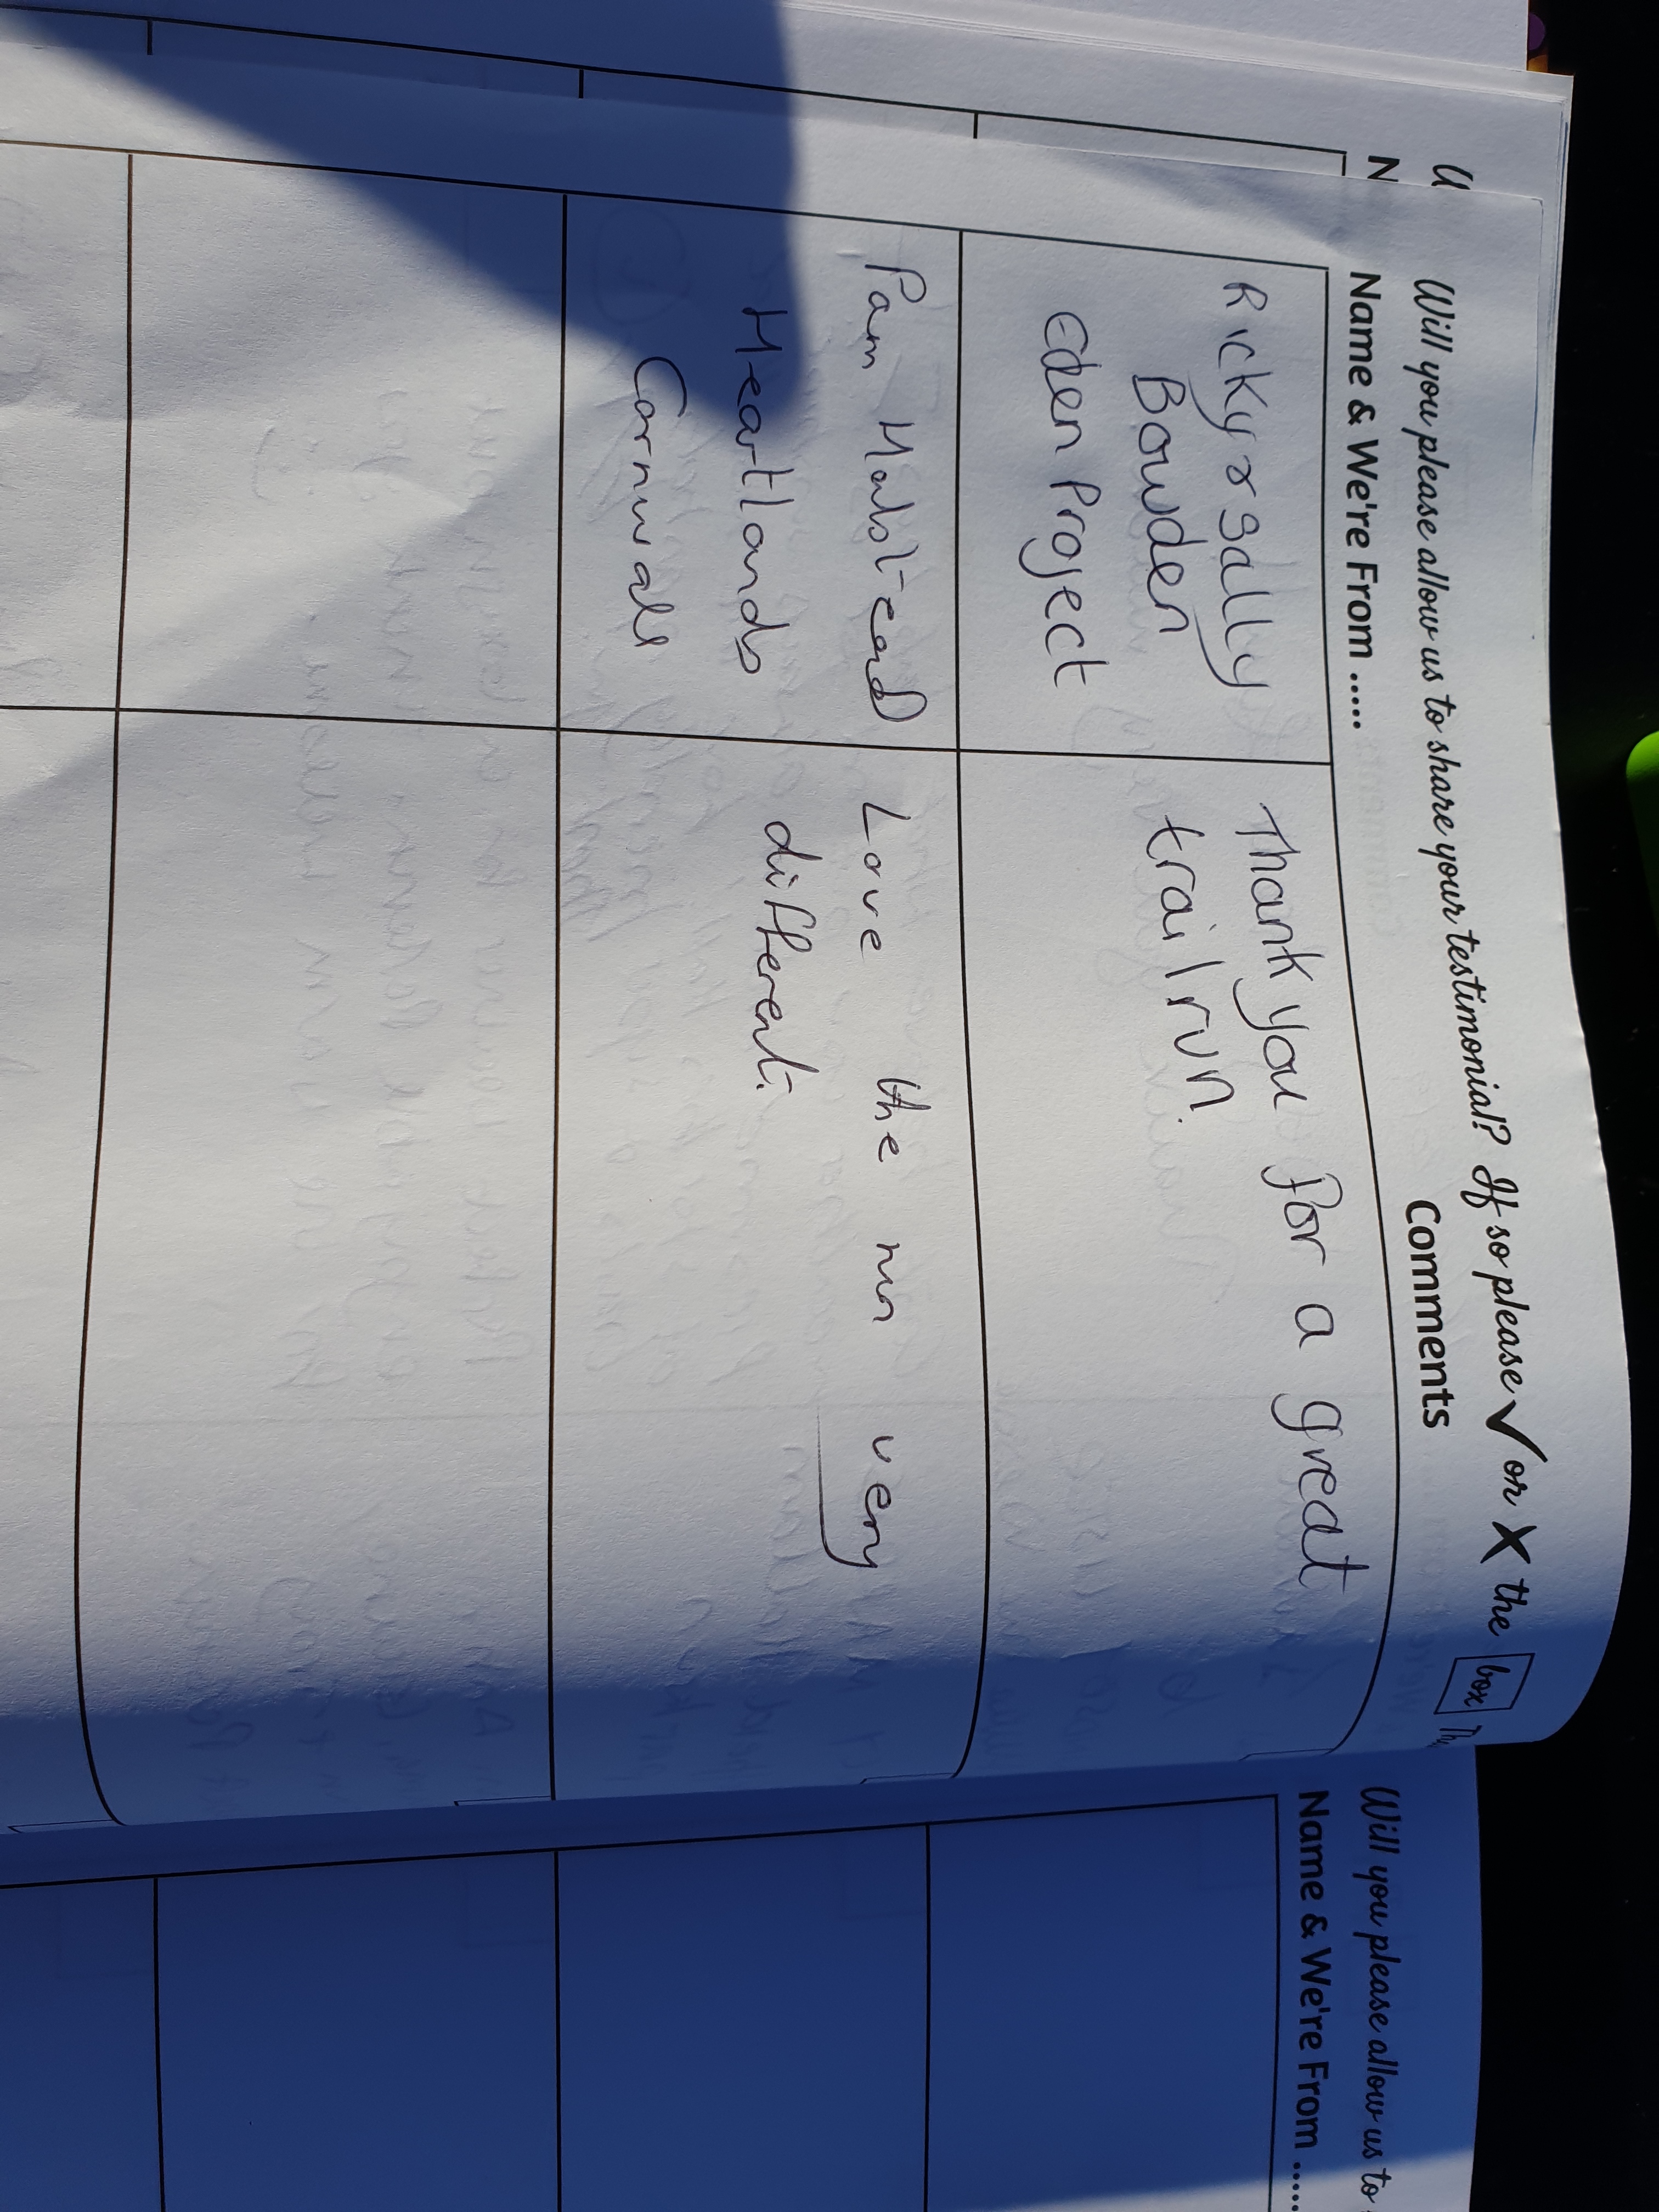 Will you please allow us to share your testimonial? If so please ✓ or X the box
Name & We're From ..... Comments
Ricky & Sally
Bowden
Eden Project
Thank you for a great
trail run.
Pam
Heartlands
Cornwall
Love the run very
different.
Will you please allow us to
Name & We're From .....